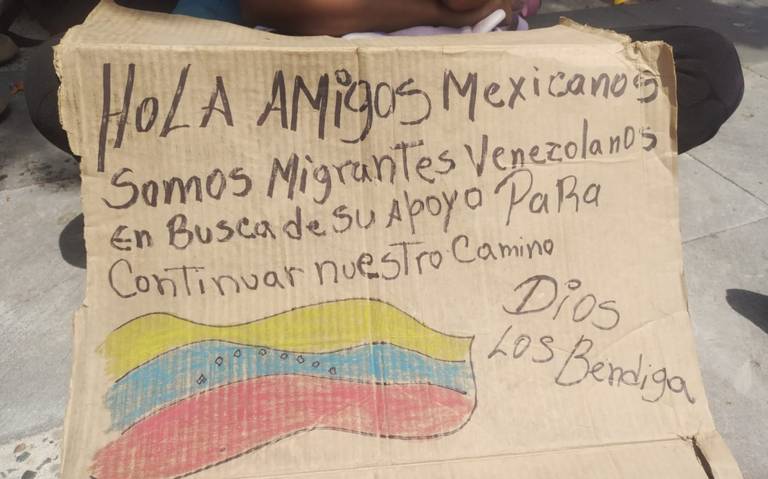 HOLA AMigos Mexicanos
Somos Migrantes Venezolanos
en Busca de su Apoyo PaRa
Continuar nuestro Camino
Dios
Los Bendiga